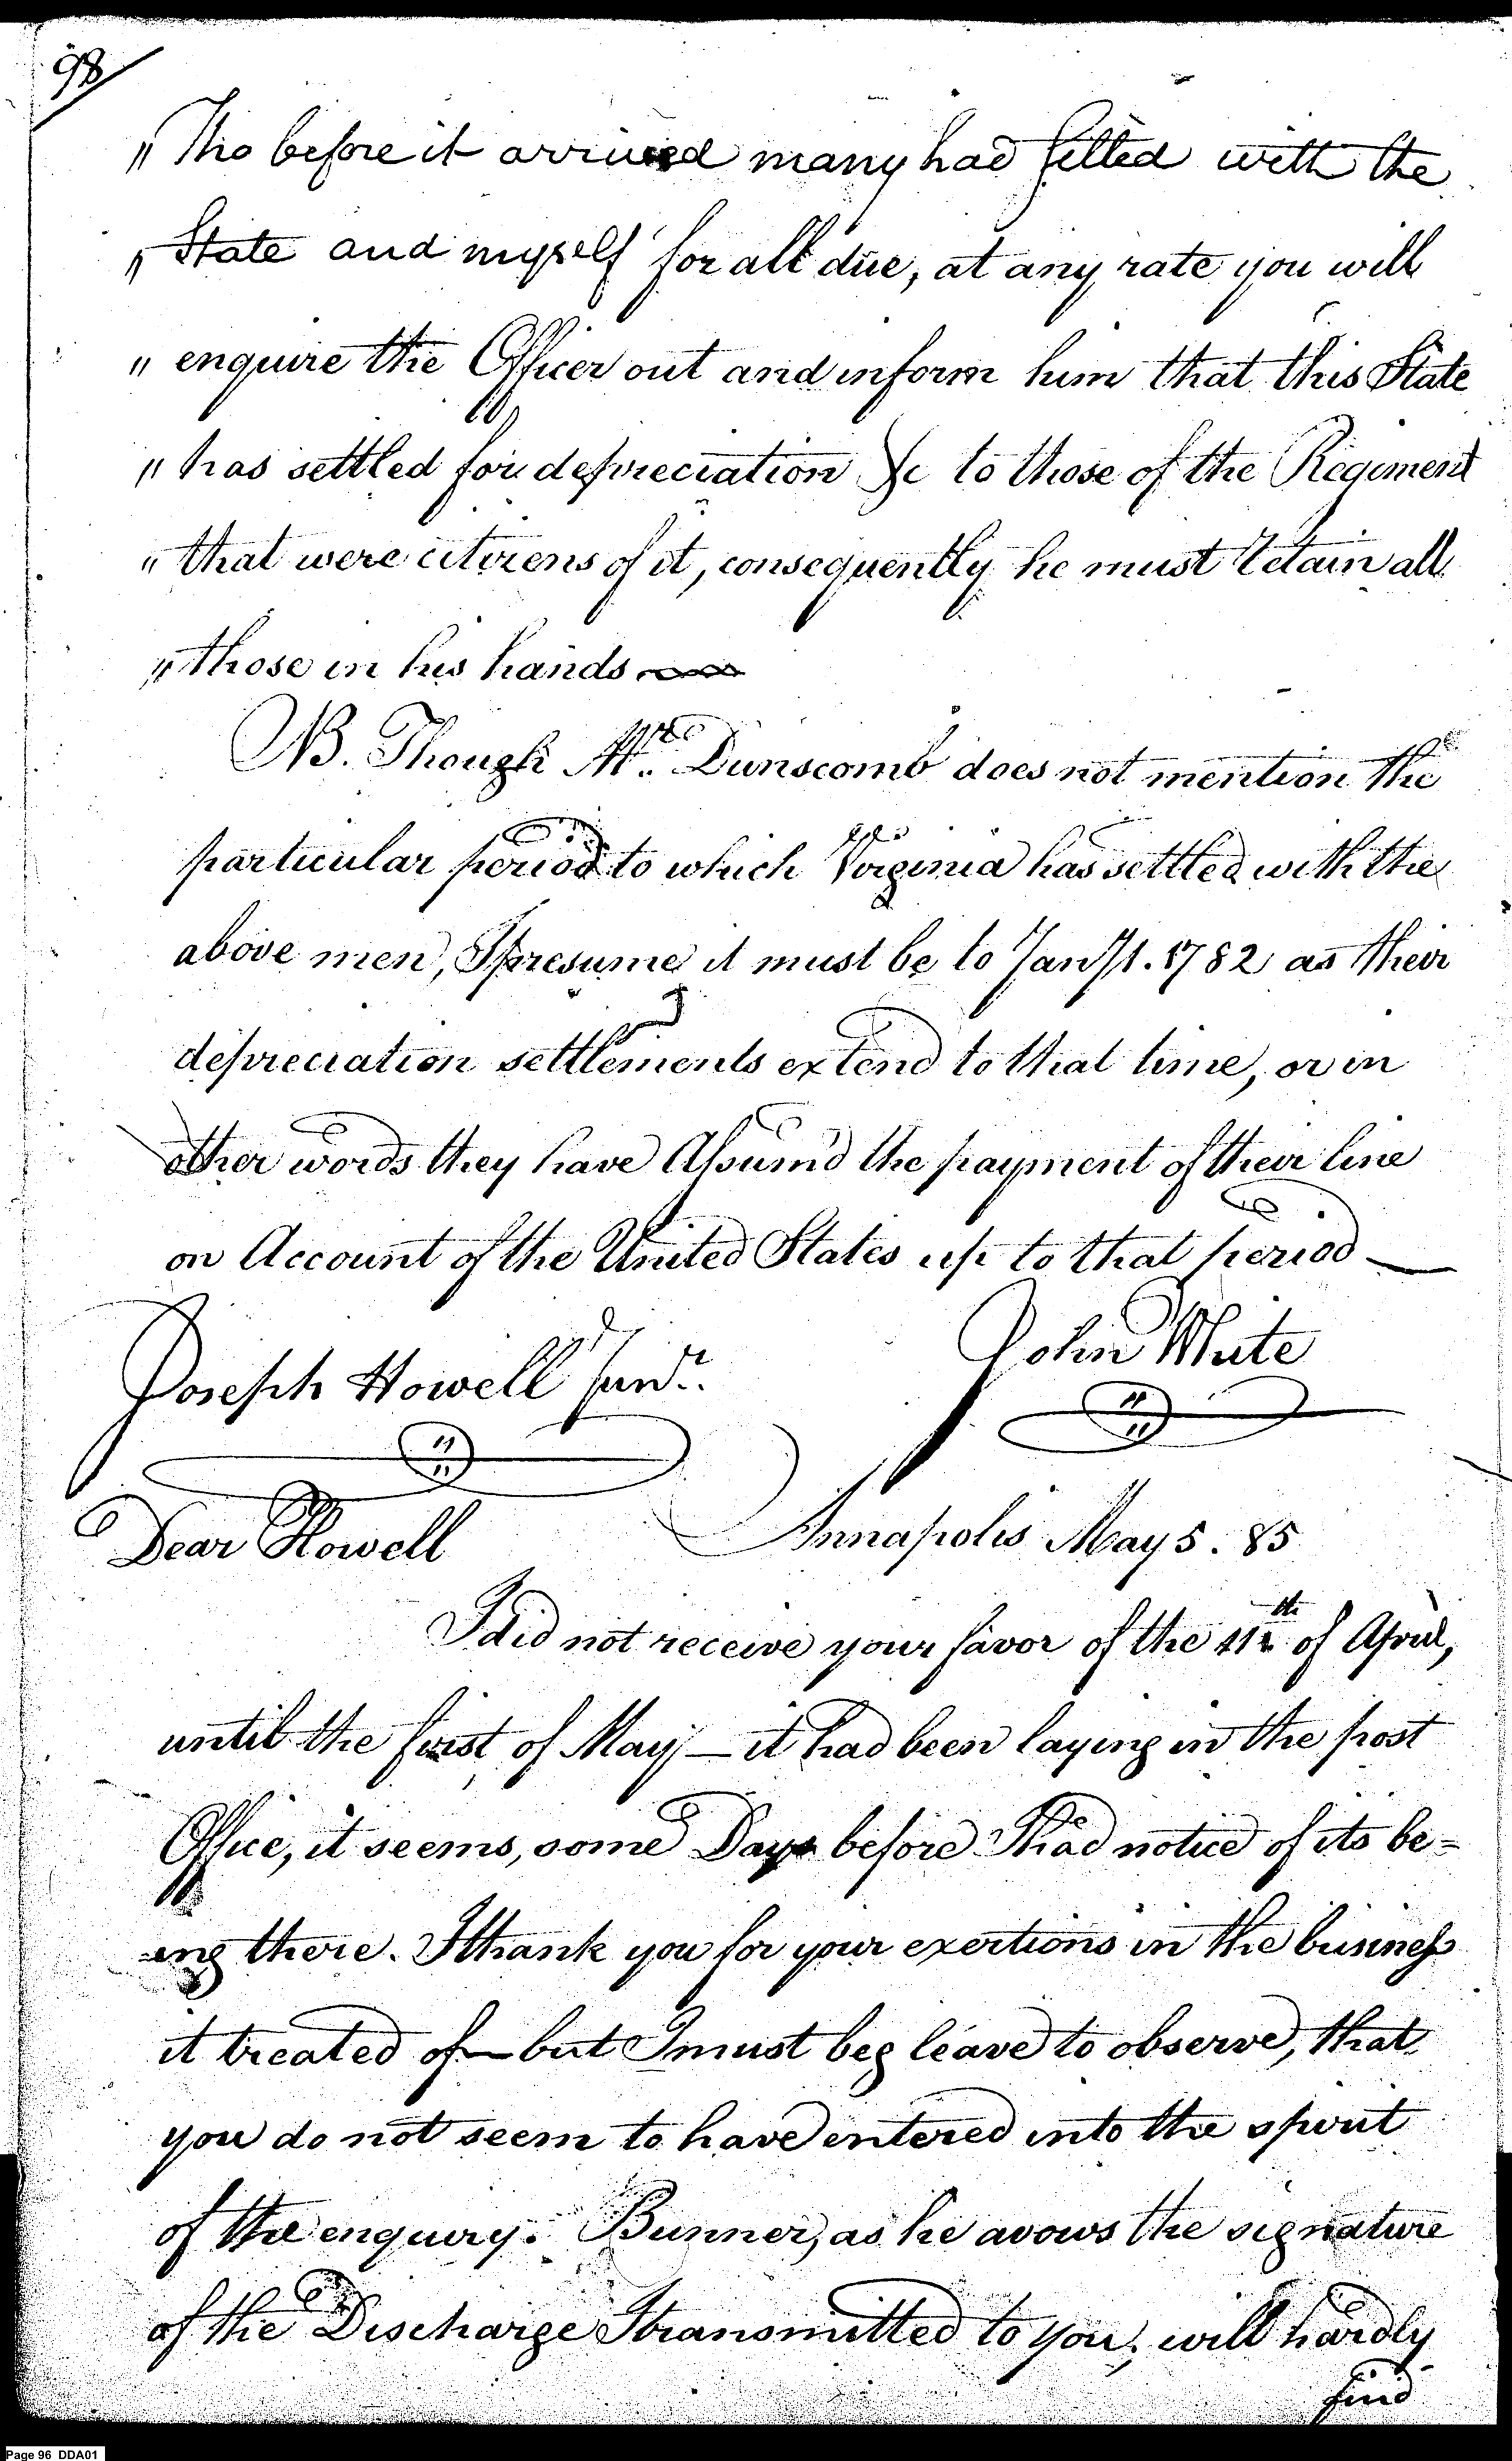 98
" Tho before it arrived many had setled with the
" State and myself for all due, at any rate you will
" enquire the Officer out and inform him that this State
" has settled for depreciation &c to those of the Regiment
" that were citizens of it, consequently he must retain all
" those in his hands
NB. Though Mr. Dunscomb does not mention the
particular period to which Virginia has settled with the
above men, I presume it must be to Jany 1. 1782 as their
depreciation settlements extend to that time, or in
other words they have Assum'd the payment of their line
on Account of the United States up to that period —
John White
Joseph Howell Junr.
Annapolis May 5. 85
Dear Howell
I did not receive your favor of the 11th of April,
until the first of May — it had been laying in the post
Office, it seems, some Days before I had notice of its be=
=ing there. I thank you for your exertions in the business
it treated of — but I must beg leave to observe, that
you do not seem to have entered into the spirit
of the enquiry. Bunner, as he avows the signature
of the Discharge I transmitted to you, will hardly
find
Page 96 DDA01